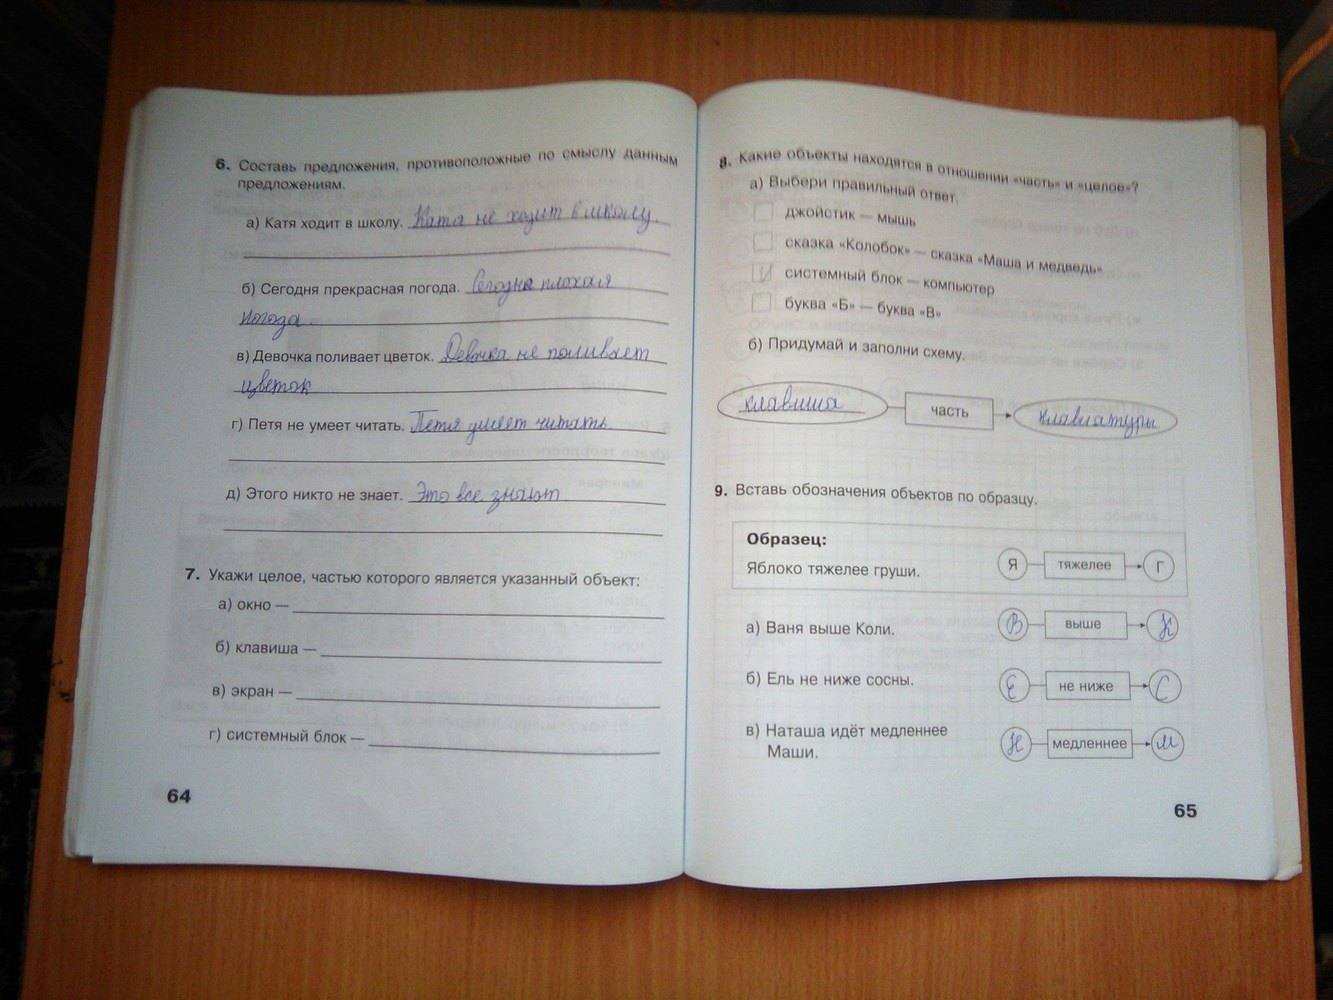 6. Составь предложения, противоположные по смыслу данным
предложениям.
а) Катя ходит в школу. Катя не ходит в школу.
б) Сегодня прекрасная погода. Сегодня плохая
погода.
в) Девочка поливает цветок. Девочка не поливает
цветок
г) Петя не умеет читать. Петя умеет читать.
д) Этого никто не знает. Это все знают
7. Укажи целое, частью которого является указанный объект:
а) окно —
б) клавиша —
в) экран —
г) системный блок —
64
8. Какие объекты находятся в отношении «часть» и «целое»?
а) Выбери правильный ответ.
джойстик — мышь
сказка «Колобок» — сказка «Маша и медведь»
системный блок — компьютер
буква «Б» — буква «В»
б) Придумай и заполни схему.
клавиша часть клавиатуры
9. Вставь обозначения объектов по образцу.
Образец:
Яблоко тяжелее груши. Я тяжелее Г
а) Ваня выше Коли. В выше К
б) Ель не ниже сосны. Е не ниже С
в) Наташа идёт медленнее Н медленнее М
Маши.
65